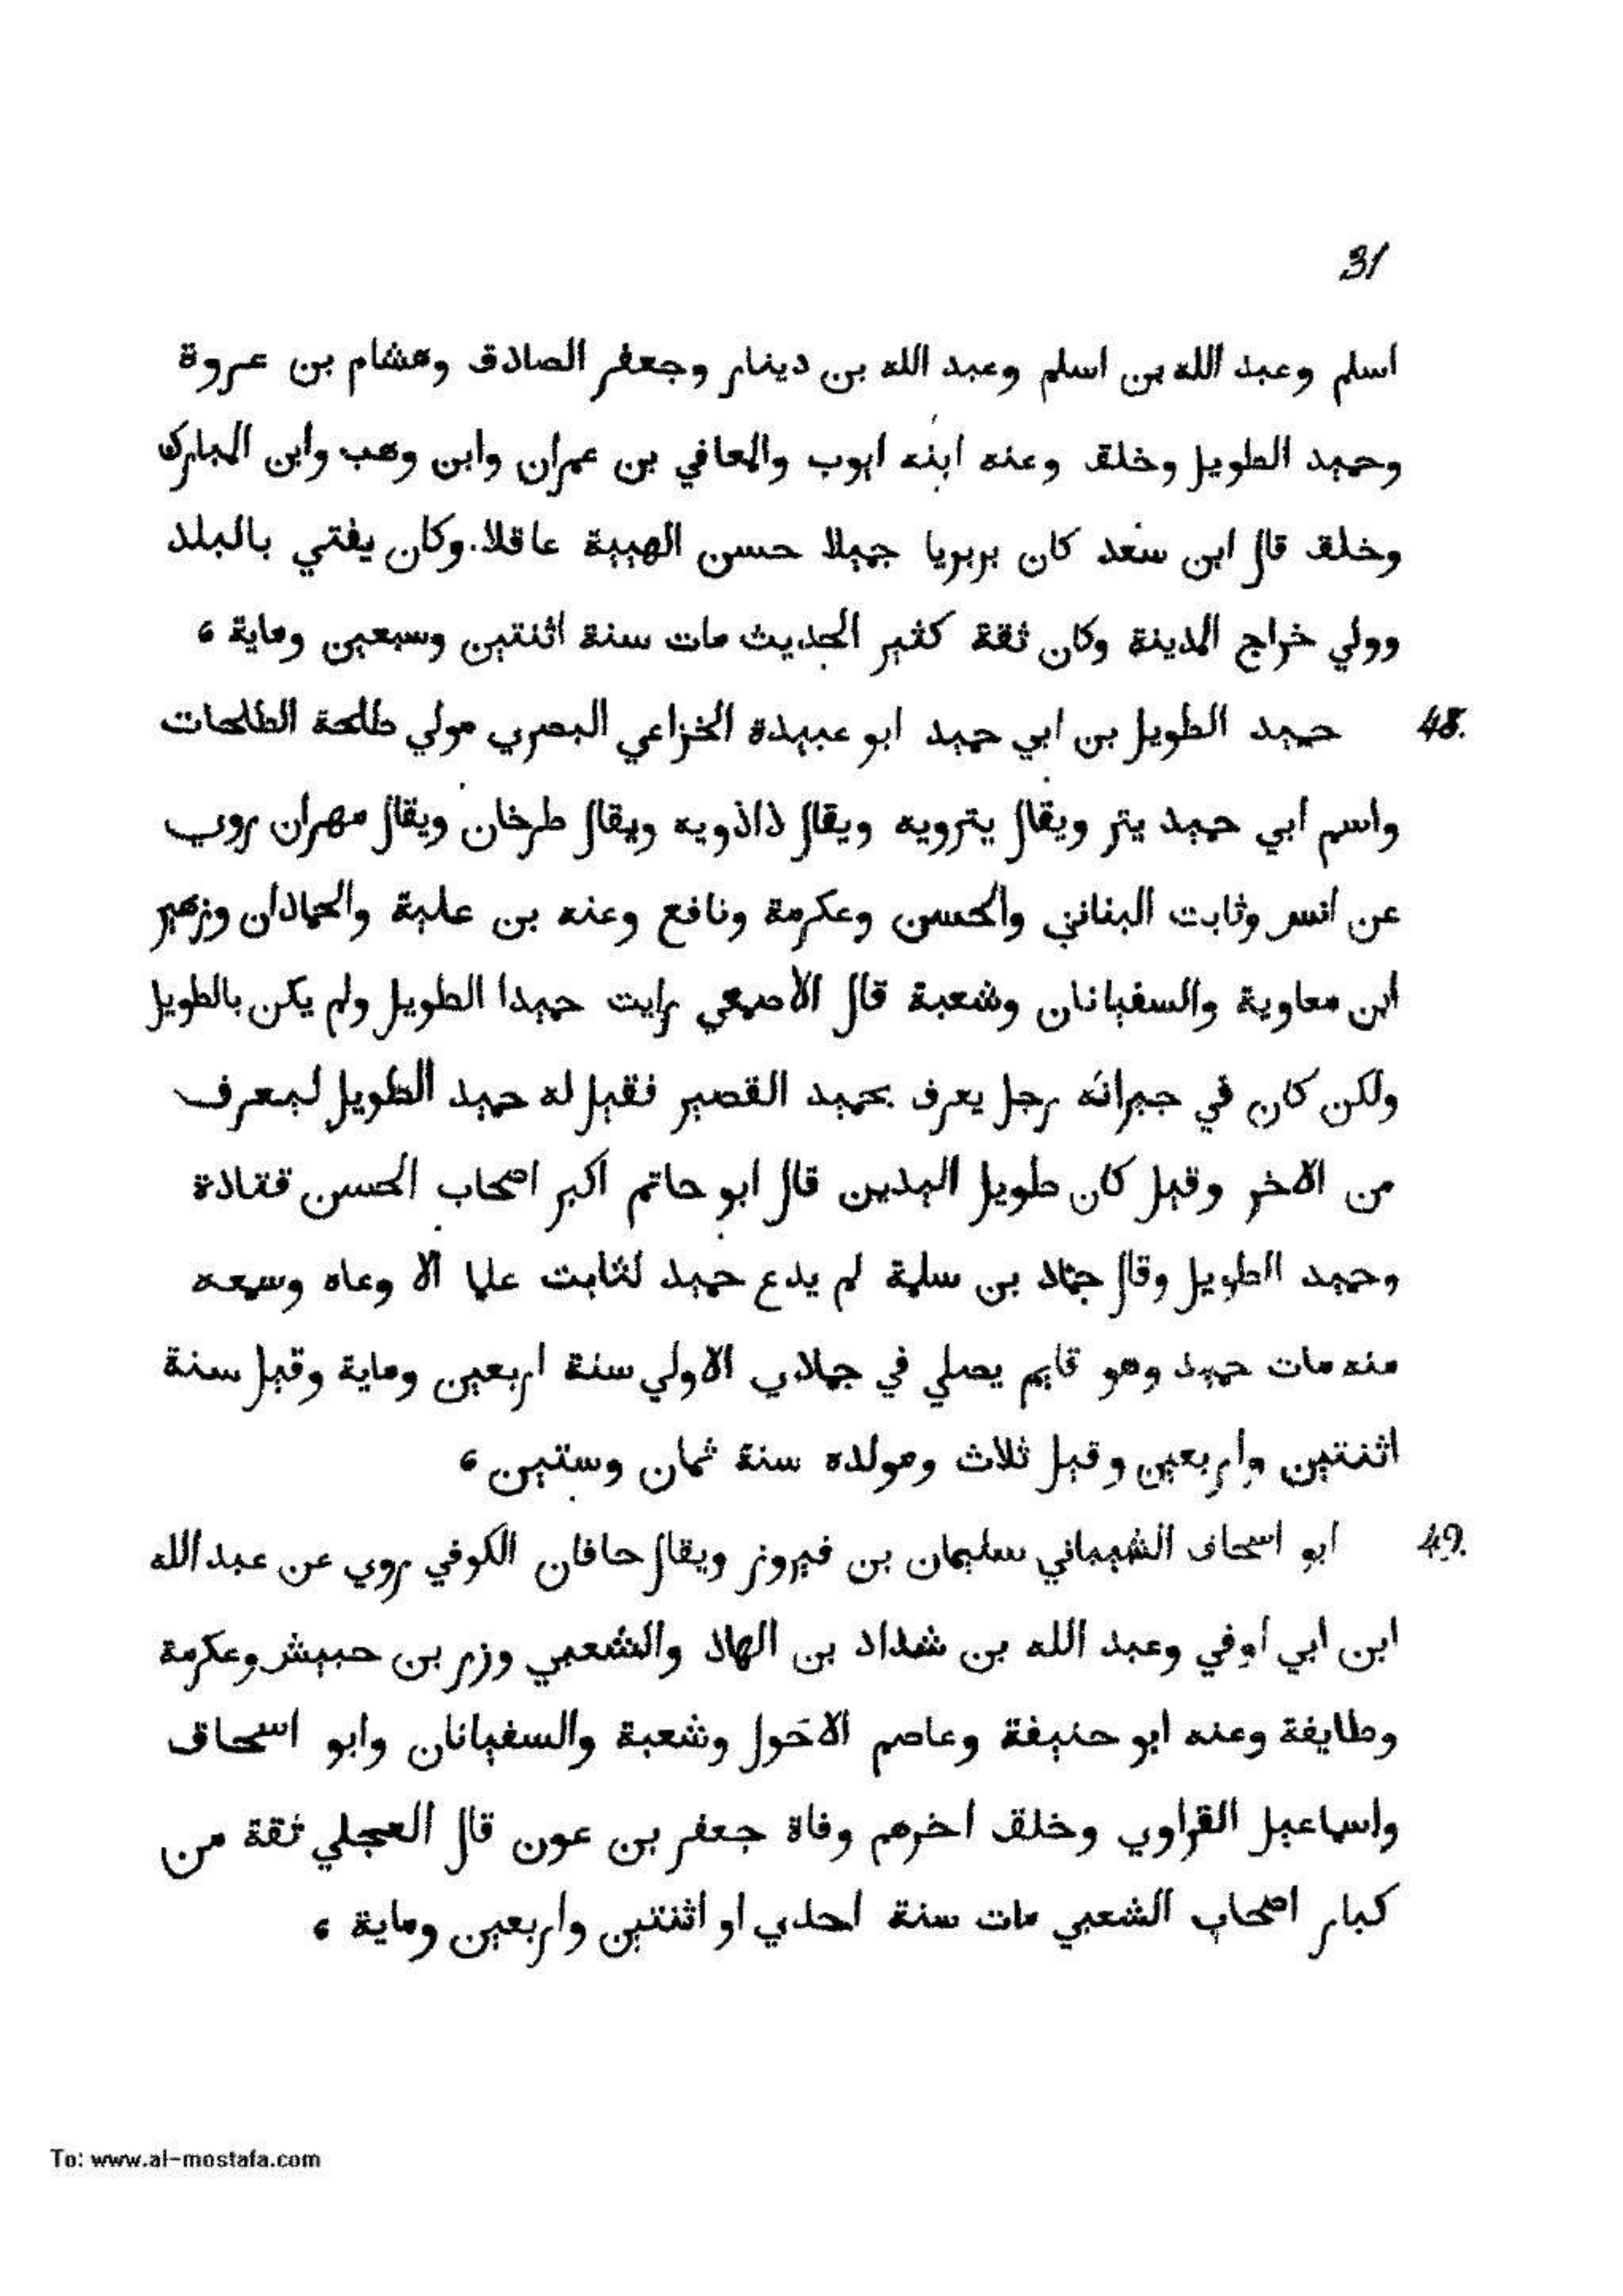 31
اسلم وعبد الله بن اسلم وعبد الله بن دينار وجعفر الصادق وهشام بن عروة
وحميد الطويل وخلق وعنه ابنه ايوب والمعافي بن عمران وابن وهب وابن المبارك
وخلق قال ابن سعد كان بربريا جميلا حسن الهيية عاقلا. وكان يفتي بالبلد
وولي خراج المدينة وكان ثقة كثير الحديث مات سنة اثنتين وسبعين وماية ،
48. حميد الطويل بن ابي حميد ابو عبيدة الخزاعي البصري مولي طلحة الطلحات
واسم ابي حميد يتر ويقال يترويه ويقال ذاذويه ويقال طرخان ويقال مهران روي
عن انس وثابت البناني والحسن وعكرمة ونافع وعنه بن علية والحمادان وزهير
ابن معاوية والسفيانان وشعبة قال الأصمعي رايت حميدا الطويل ولم يكن بالطويل
ولكن كان في جيرانه رجل يعرف بحميد القصير فقيل له حميد الطويل ليعرف
من الاخر وقيل كان طويل اليدين قال ابو حاتم اكبر اصحاب الحسن قتادة
وحميد الطويل وقال حماد بن سلمة لم يدع حميد لثابت علما الا وعاه وسمعه
منه مات حميد وهو قايم يصلي في جمادي الاولي سنة اربعين وماية وقيل سنة
اثنتين واربعين وقيل ثلاث ومولده سنة ثمان وستين ،
49. ابو اسحاق الشيباني سليمان بن فيروز ويقال خاقان الكوفي روي عن عبد الله
ابن ابي اوفي وعبد الله بن شداد بن الهاد والشعبي وزر بن حبيش وعكرمة
وطايفة وعنه ابو حنيفة وعاصم الاحول وشعبة والسفيانان وابو اسحاق
واسماعيل القراوي وخلق اخرهم وفاة جعفر بن عون قال العجلي ثقة من
كبار اصحاب الشعبي مات سنة احدي او اثنتين واربعين وماية ،
To: www.al-mostafa.com